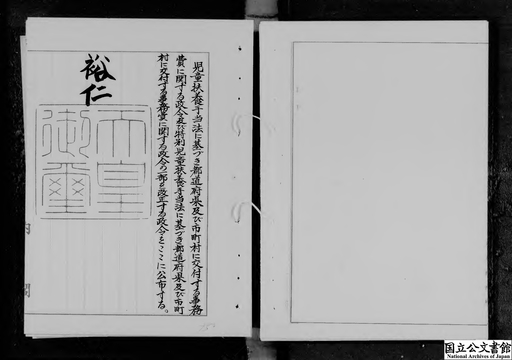 児童扶養手当法に基づき都道府県及び市町村に交付する事務
費に関する政令及び特別児童扶養手当法に基づき都道府県及び市町
村に交付する事務費に関する政令の一部を改正する政令をここに公布する。
裕仁
天皇
御璽
国立公文書館
National Archives of Japan